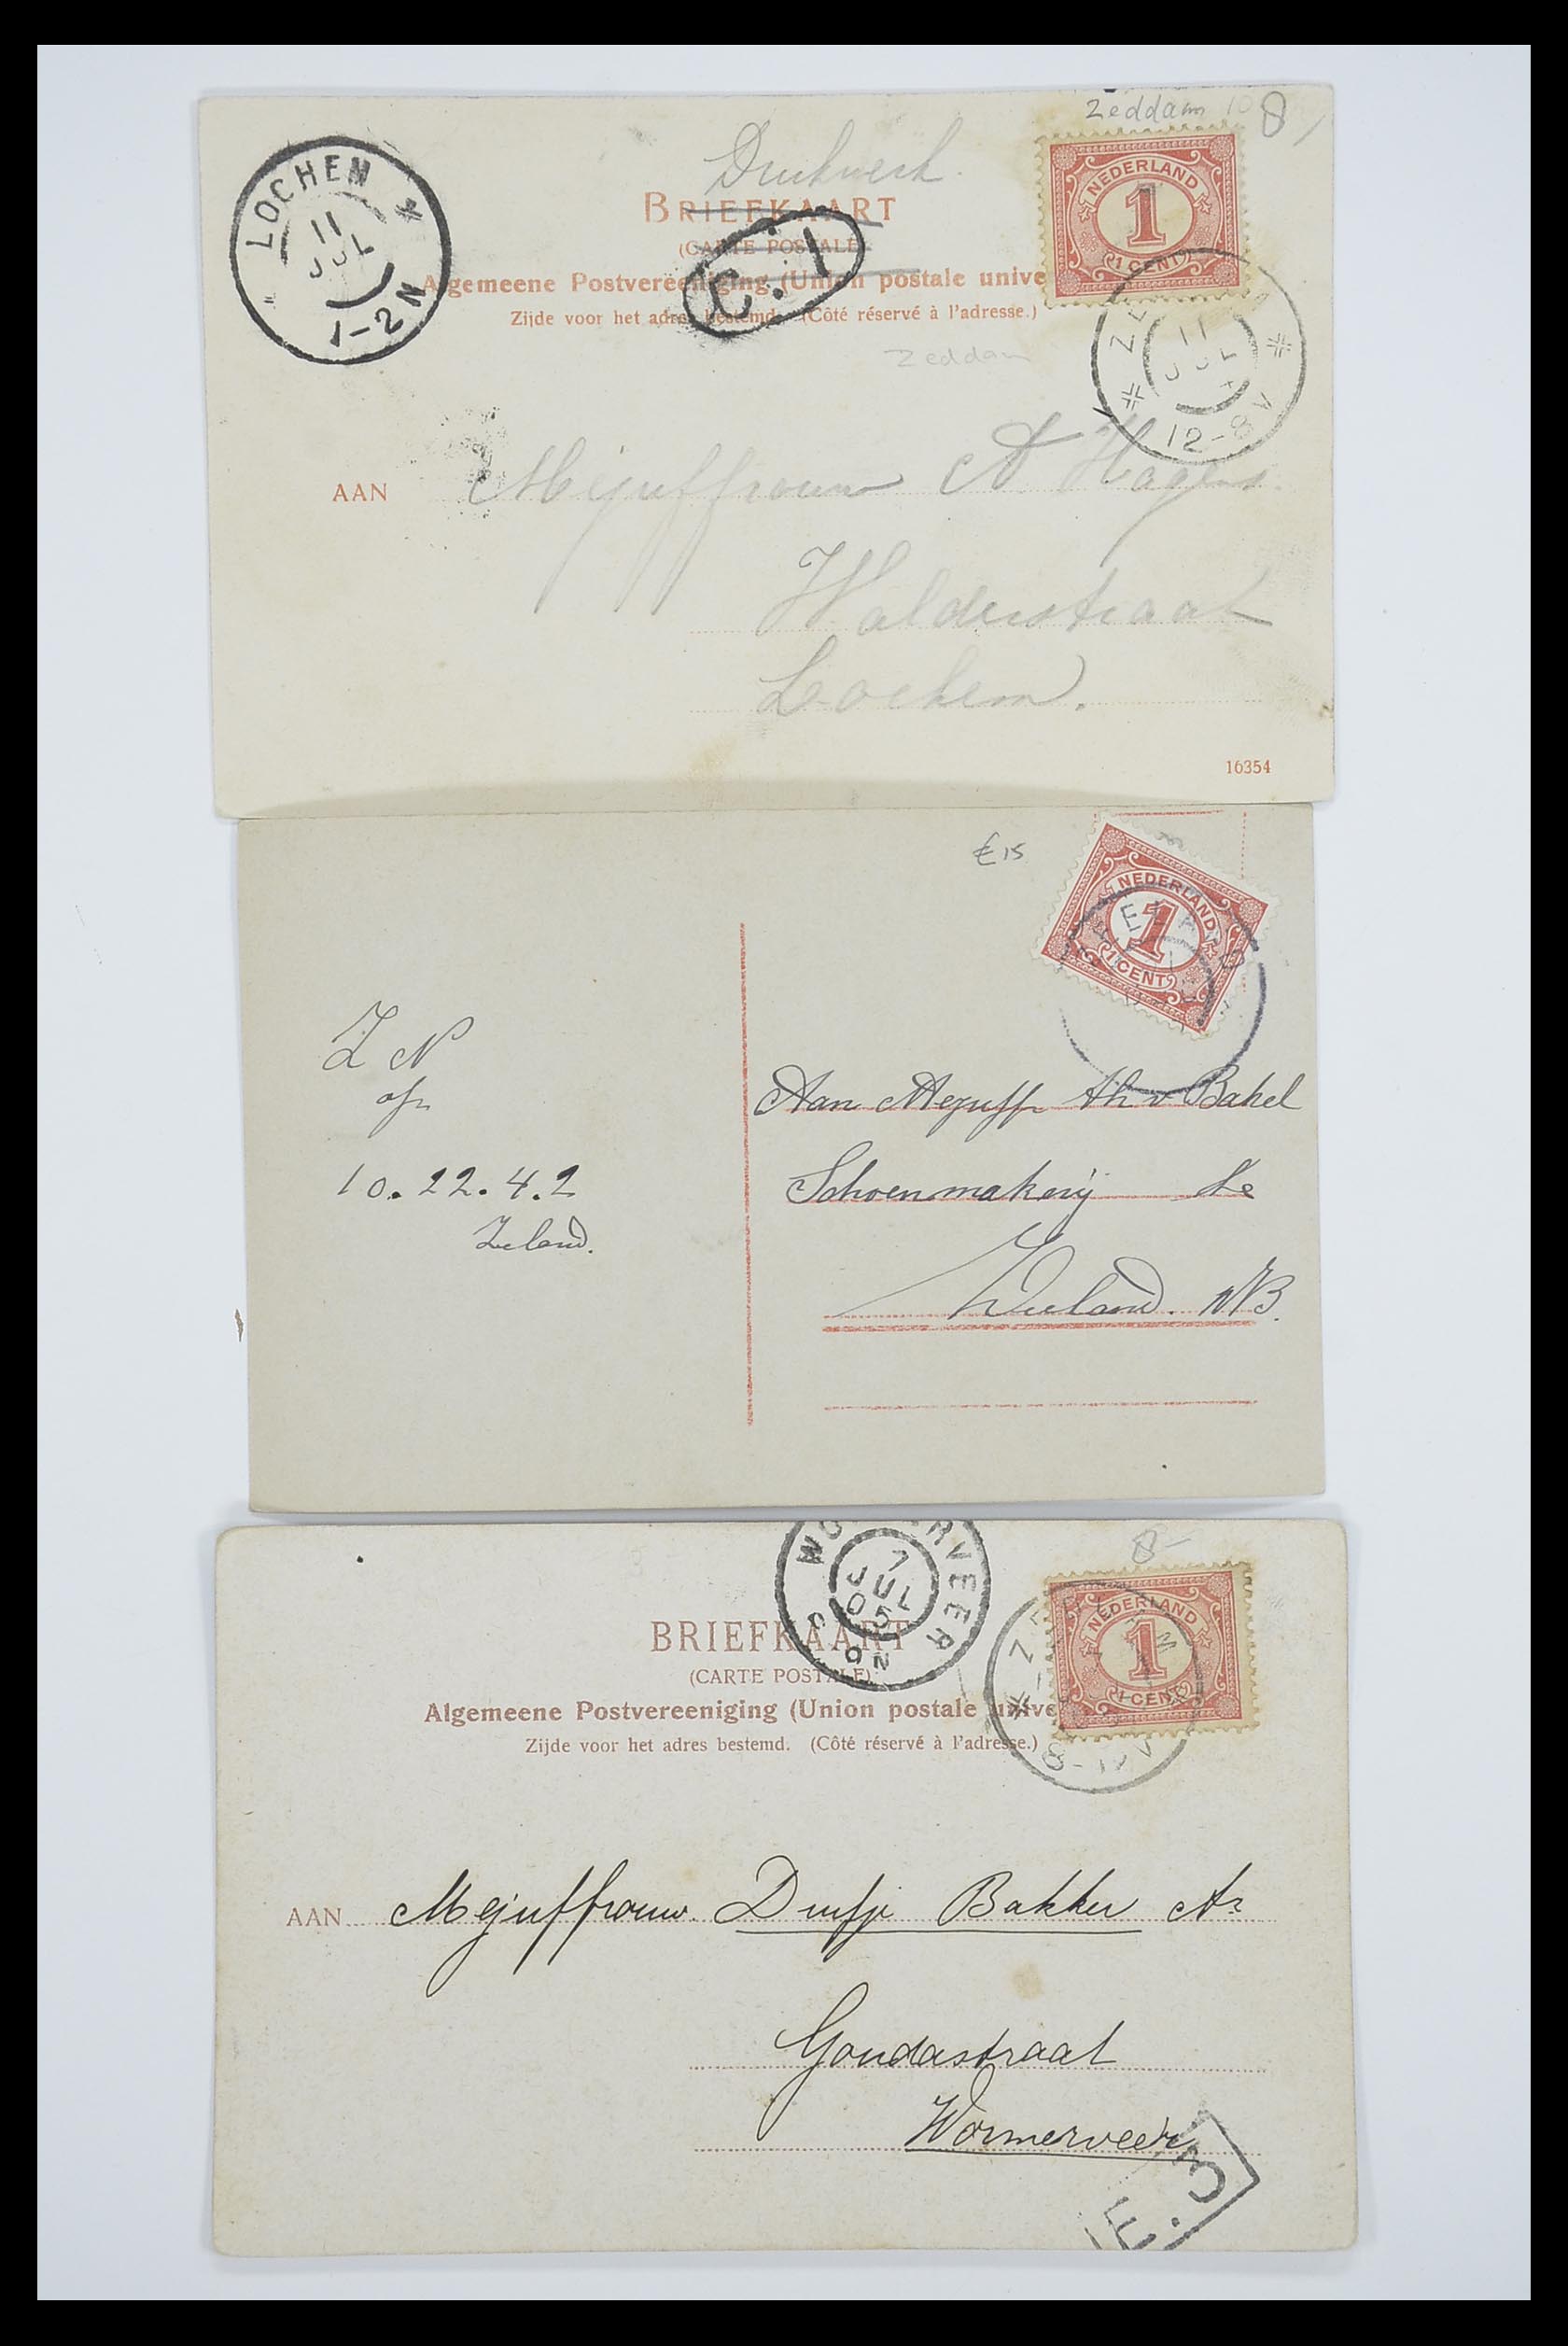 Zeddam 10 8
Drukwerk.
BRIEFKAART
(CARTE POSTALE)
Algemeene Postvereeniging (Union postale unive
Zijde voor het adres bestemd. (Côté réservé à l'adresse.)
LOCHEM
11
JUL
1-2N
C:1
NEDERLAND
1
1 CENT
11
JUL
12-8V
Zeddam
AAN Mejuffrouw A Hagens.
Walderstraat
Lochem.
16354
€15
NEDERLAND
1
1 CENT
Z N
afz
10.22.4.2
Zeland.
Aan Mejuffr Th v Bakel
Schoenmakerij Te
Zeeland. NB.
8-
WORMERVEER
7
JUL
05
NEDERLAND
1
1 CENT
8-12V
BRIEFKAART
(CARTE POSTALE)
Algemeene Postvereeniging (Union postale unive
Zijde voor het adres bestemd. (Côté réservé à l'adresse.)
AAN Mejuffrouw. Duifje Bakker Az
Goudastraat
Wormerveer
E.3